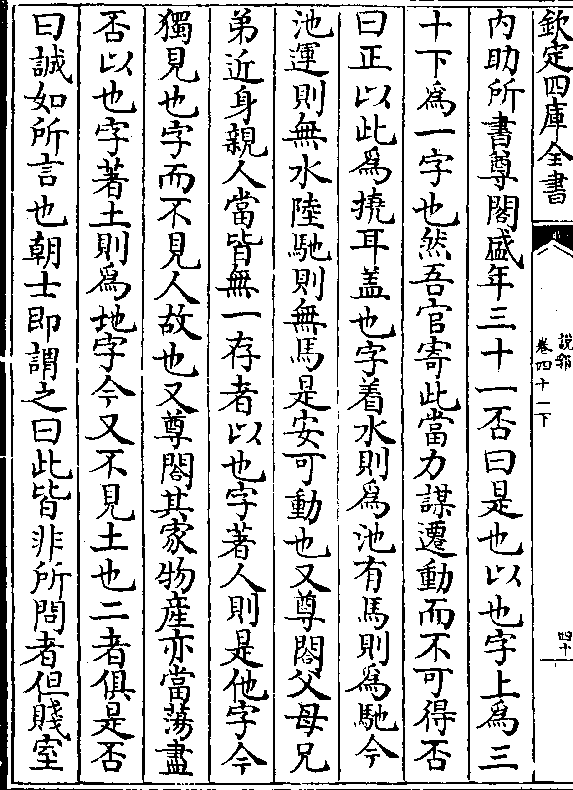 欽定四庫全書
說郛
卷四十一下
四十
內助所書尊閤盛年三十一否曰是也以也字上為三
十下為一字也然吾官寄此當力謀遷動而不可得否
曰正以此為撓耳盖也字着水則為池有馬則為馳今
池運則無水陸馳則無馬是安可動也又尊閤父母兄
弟近身親人當皆無一存者以也字著人則是他字今
獨見也字而不見人故也又尊閤其家物產亦當蕩盡
否以也字著土則為地字今又不見土也二者俱是否
曰誠如所言也朝士即謂之曰此皆非所問者但賤室